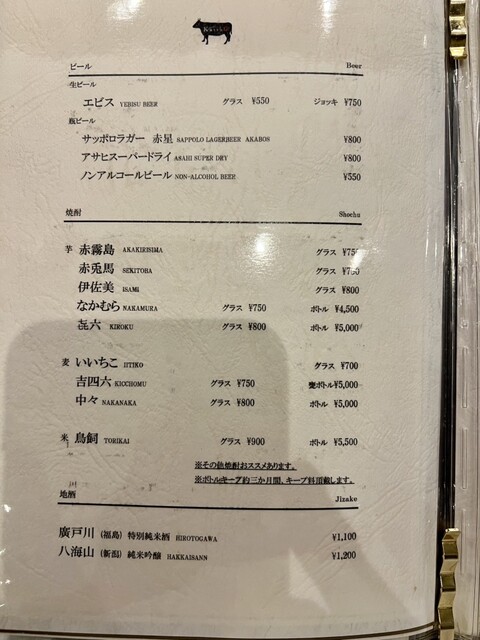 ビール Beer
生ビール
エビス YEBISU BEER グラス ¥550 ジョッキ ¥750
瓶ビール
サッポロラガー 赤星 SAPPOLO LAGERBEER AKABOS ¥800
アサヒスーパードライ ASAHI SUPER DRY ¥800
ノンアルコールビール NON-ALCOHOL BEER ¥550
焼酎 Shochu
芋 赤霧島 AKAKIRISIMA グラス ¥750
赤兎馬 SEKITOHA グラス ¥750
伊佐美 ISAMI グラス ¥800
なかむら NAKAMURA グラス ¥750 ボトル ¥4,500
㐂六 KIROKU グラス ¥800 ボトル ¥5,000
麦 いいちこ IITIKO グラス ¥700
吉四六 KICCHOMU グラス ¥750 甕ボトル¥5,000
中々 NAKANAKA グラス ¥800 ボトル ¥5,000
米 鳥飼 TORIKAI グラス ¥900 ボトル ¥5,500
※その他焼酎おススメあります。
※ボトルキープ約三か月間、キープ料頂戴します。
地酒 Jizake
廣戸川 (福島) 特別純米酒 HIROTOGAWA ¥1,100
八海山 (新潟) 純米吟醸 HAKKAISANN ¥1,200